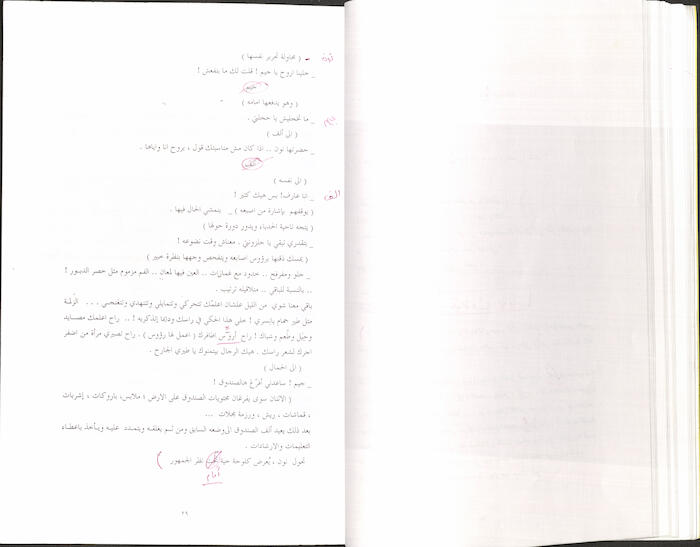 نون - ( محاولة تحرير نفسها )
_ خلينا نروح يا جيم ! قلت لك ما بنفعش !
جيم
( وهو يدفعها امامه )
_ ما تخجليش يا حجلتي .
( الى ألف )
_ حضرتها نون .. اذا كان مش مناسبتك قول ، بروح انا واياها .
ألف
( الى نفسه )
_ انا عارف! بس هيك كتير !
( يوقفهم بإشارة من اصبعه ) _ بنمشي الحال فيها .
( يتجه ناحية الحدباء ويدور دورة حولها )
_ بتقدري تبقي يا حلزونيتي . معناش وقت نضوعه !
( يمسك ذقنها برؤوس اصابعه ويتفحص وجهها بنظرة خبير )
_ حلو ومفرفح .. خدود مع غمازات .. العين فيها لمعان .. الفم مزموم مثل خصر الدبور !
.. بالنسبة للباقي .. بنلاقيله ترتيب .
باقي معنا شوي من الليل علشان اعلمك تتحركي وتتمايلي وتتنهدي وتتغنجي . . . الوقفة
مثل طير حمام يابسري ! خلي هذا الحكي في راسك ودايما إتذكريه ! .. راح اعلمك مصـايد
وحيَل وطُعم وشباك ! راح أروّس اظافرك ( اعمل لها رؤوس ) . راح تصيري مرأة من اضفر
اجرك لشعر راسك . هيك الرجال بيتمنوك يا طيري الجارح .
( الى الحمال )
_ جيم ! ساعدني أفرّغ هالصندوق !
( الاثنان سوى يفرغان محتويات الصندوق على الارض : ملابس، باروكات ، إشربات
، قماشات ، ريش ، ورزمة مجلات ...
بعد ذلك يعيد ألف الصندوق الى وضعه السابق ومن ثـم يغلقـه ويتمـدد عليـه ويـأخذ باعطـاء
التعليمات والارشادات .
تحول نون ، يُعرض كلوحة حية نظر الجمهور )
أمام
٢٩